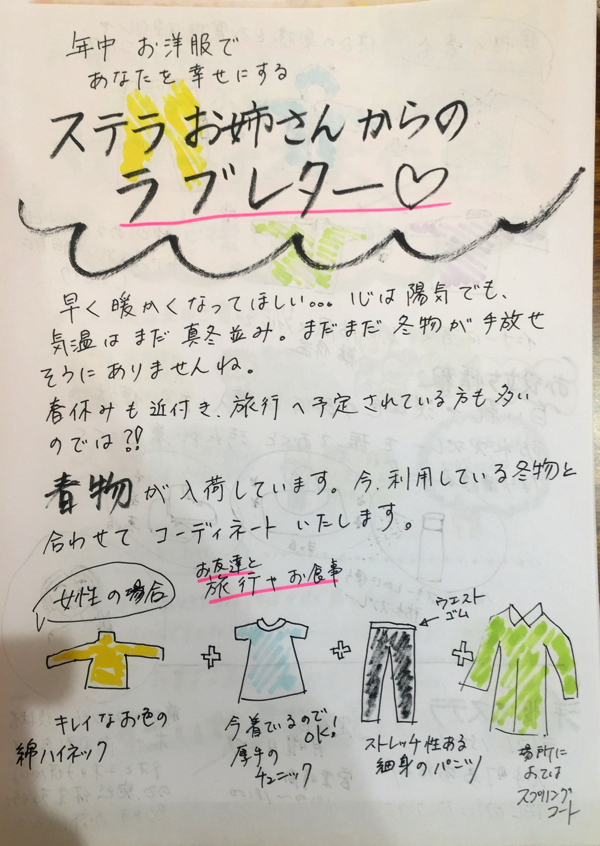 年中 お洋服で
あなたを幸せにする
ステラお姉さんからの
ラブレター♡
早く暖かくなってほしい…心は陽気でも、
気温はまだ真冬並み。まだまだ冬物が手放せ
そうにありませんね。
春休みも近付き、旅行へ予定されている方も多い
のでは?!
春物が入荷しています。今、利用している冬物と
合わせてコーディネートいたします。
女性の場合
お友達と
旅行やお食事
ウエスト
ゴム
+ + +
キレイなお色の
綿ハイネック
今着ているので
OK!
厚手の
チュニック
ストレッチ性ある
細身のパンツ
場所に
おては
スプリング
コート